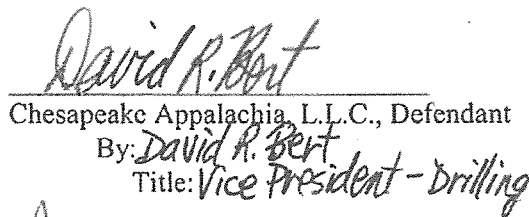 David R. Bert
Chesapeake Appalachia, L.L.C., Defendant
By: David R. Bert
Title: Vice President - Drilling